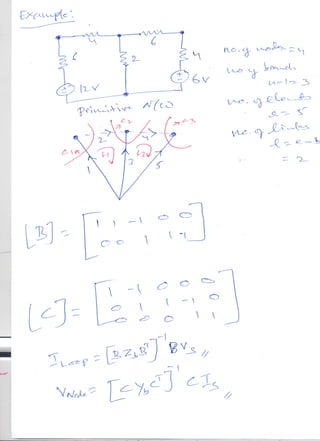 Example:
4 6
6 2 4
12V 6V
no. of nodes = 4
no of branch
n-1 = 3
no. of elements
e = 5
no. of links
l = e-b
= 2
Primitive N/w
2 4
1 3 5
[B] = [ 1 1 -1 0 0
0 0 1 1 -1 ]
[C] = [ 1 -1 0 0 0
0 1 1 -1 0
0 0 0 1 1 ]
I Loop = [B Zb Bᵀ]⁻¹ B Vs //
V Node = [C Yb Cᵀ]⁻¹ C Is //